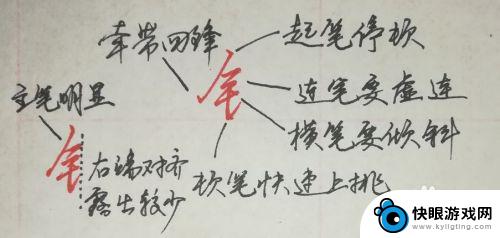 牵带回锋
起笔停顿
连笔要虚连
横笔要倾斜
顿笔快速上挑
主笔明显
右端对齐
露出较少
快眼游戏网
www.kyligting.com